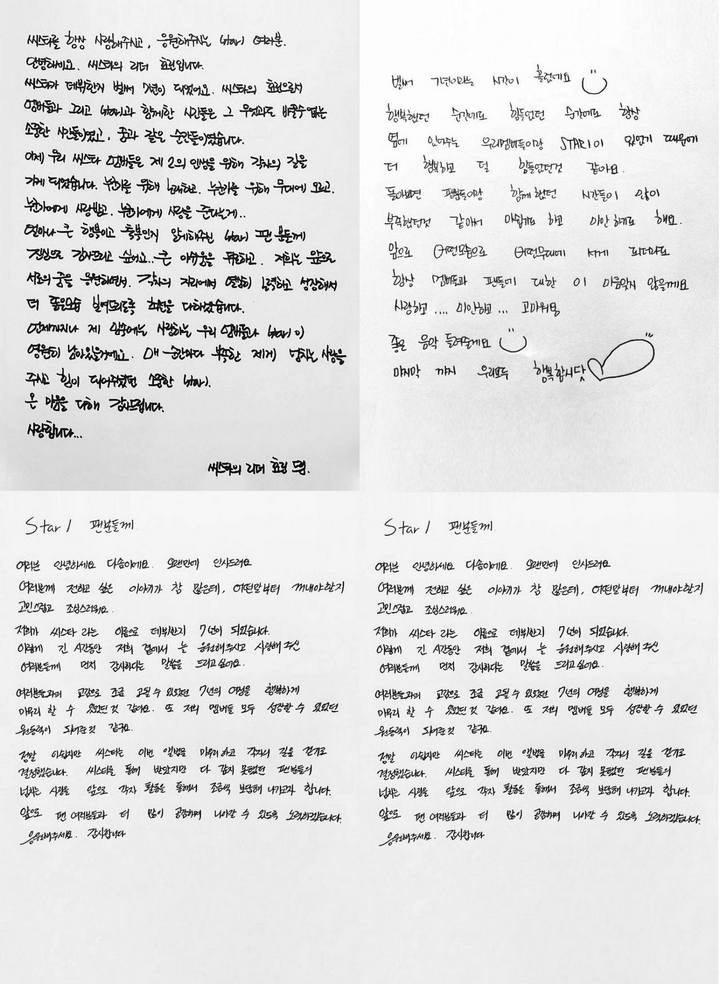 씨스타를 항상 사랑해주시고, 응원해주시는 star1 여러분.
안녕하세요. 씨스타의 리더 효린입니다.
씨스타가 데뷔한지 벌써 7년이 되었어요. 씨스타의 효린으로서
멤버들과 그리고 star1과 함께한 시간들은 그 무엇과도 바꿀수 없는
소중한 시간들이였고, 꿈과 같은 순간들이였습니다.
이제 우리 씨스타 멤버들은 제 2의 인생을 위해 각자의 길을
가게 되었습니다. 누군가를 위해 노래하고, 누군가를 위해 무대에 오르고.
누군가에게 사랑받고, 누군가에게 사랑을 준다는게..
얼마나 큰 행복이고 축복인지 알게해주신 star1 팬 분들께
진심으로 감사드리고 싶어요.. 큰 아쉬움을 뒤로하고, 저희는 앞으로
서로의 꿈을 응원하면서, 각자의 자리에서 열심히 노력하고 성장해서
더 좋은모습 보여드리도록 최선을 다하겠습니다.
언제까지나 제 마음에는 사랑하는 우리 멤버들과 star1이
영원히 남아있을거에요. 매 순간마다 부족한 제게 넘치는 사랑을
주시고 힘이 되어주셨던 소중한 star1.
온 마음을 다해 감사드립니다.
사랑합니다...
씨스타의 리더 효린 드림.
벌써 7년이라는 시간이 흘렀네요
행복했던 순간에도 힘들었던 순간에도 항상
옆에 있어주는 우리멤버들이랑 STAR1이 있었기 때문에
더 행복하고 덜 힘들었던것 같아요.
돌아보면 팬분들이랑 함께했던 시간들이 많이
부족했던것 같아서 아쉽기도 하고 미안하기도 해요.
앞으로 어떤모습으로 어떤무대에 서게 되더라도
항상 멤버들과 팬들에 대한 이 마음잊지 않을게요
사랑하고.... 미안하고... 고마워요
좋은 음악 들려줄게요
마지막 까지 우리모두 행복합시닷
Star1 팬분들께
여러분 안녕하세요 다솜이에요. 오랜만에 인사드려요
여러분께 전하고 싶은 이야기가 참 많은데, 어떤말부터 꺼내야할지
고민스럽고 조심스러워요.
저희가 씨스타 라는 이름으로 데뷔한지 7년이 되었습니다.
이렇게 긴 시간동안 저희 곁에서 늘 응원해주시고 사랑해 주신
여러분들께 먼저 감사하다는 말씀을 드리고싶어요.
여러분들과의 교감으로 조금 고될 수 있었던 7년의 여정을 행복하게
마무리 할 수 있었던 것 같아요. 또 저희 멤버들 모두 성장할 수 있었던
원동력이 되어준것 같구요.
정말 아쉽지만 씨스타는 이번 앨범을 마무리하고 각자의 길을 걷기로
결정했습니다. 씨스타를 통해 받았지만 다 갚지 못했던 팬분들의
넘치는 사랑을 앞으로 각자 활동을 통해서 조금씩 보답해 나가고자 합니다.
앞으로 팬 여러분들과 더 많이 공감하며 나아갈 수 있도록 노력하겠습니다.
응원해주세요. 감사합니다
Star1 팬분들께
여러분 안녕하세요 다솜이에요. 오랜만에 인사드려요
여러분께 전하고 싶은 이야기가 참 많은데, 어떤말부터 꺼내야할지
고민스럽고 조심스러워요.
저희가 씨스타 라는 이름으로 데뷔한지 7년이 되었습니다.
이렇게 긴 시간동안 저희 곁에서 늘 응원해주시고 사랑해 주신
여러분들께 먼저 감사하다는 말씀을 드리고싶어요.
여러분들과의 교감으로 조금 고될 수 있었던 7년의 여정을 행복하게
마무리 할 수 있었던 것 같아요. 또 저희 멤버들 모두 성장할 수 있었던
원동력이 되어준것 같구요.
정말 아쉽지만 씨스타는 이번 앨범을 마무리하고 각자의 길을 걷기로
결정했습니다. 씨스타를 통해 받았지만 다 갚지 못했던 팬분들의
넘치는 사랑을 앞으로 각자 활동을 통해서 조금씩 보답해 나가고자 합니다.
앞으로 팬 여러분들과 더 많이 공감하며 나아갈 수 있도록 노력하겠습니다.
응원해주세요. 감사합니다